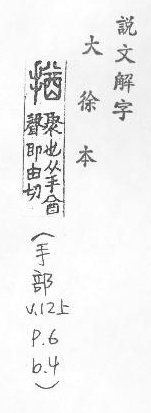 説文解字
大徐本
揂
聚也从手酋
聲即由切
(手部 V.12上 P.6 b.4)